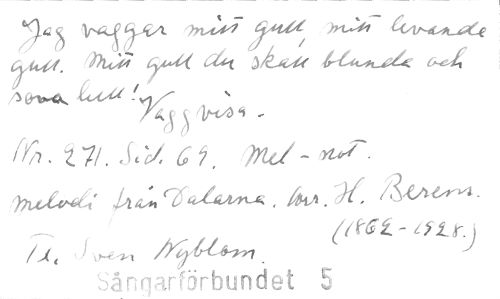 Jag vaggar mitt gull, mitt levande
gull. Mitt gull du skall blunda och
sova lull! Vaggvisa.
Nr. 271. Sid. 69. Mel-not.
melodi från Dalarna. arr. H. Berens.
(1862-1928.)
Te. Sven Nyblom.
Sångarförbundet 5